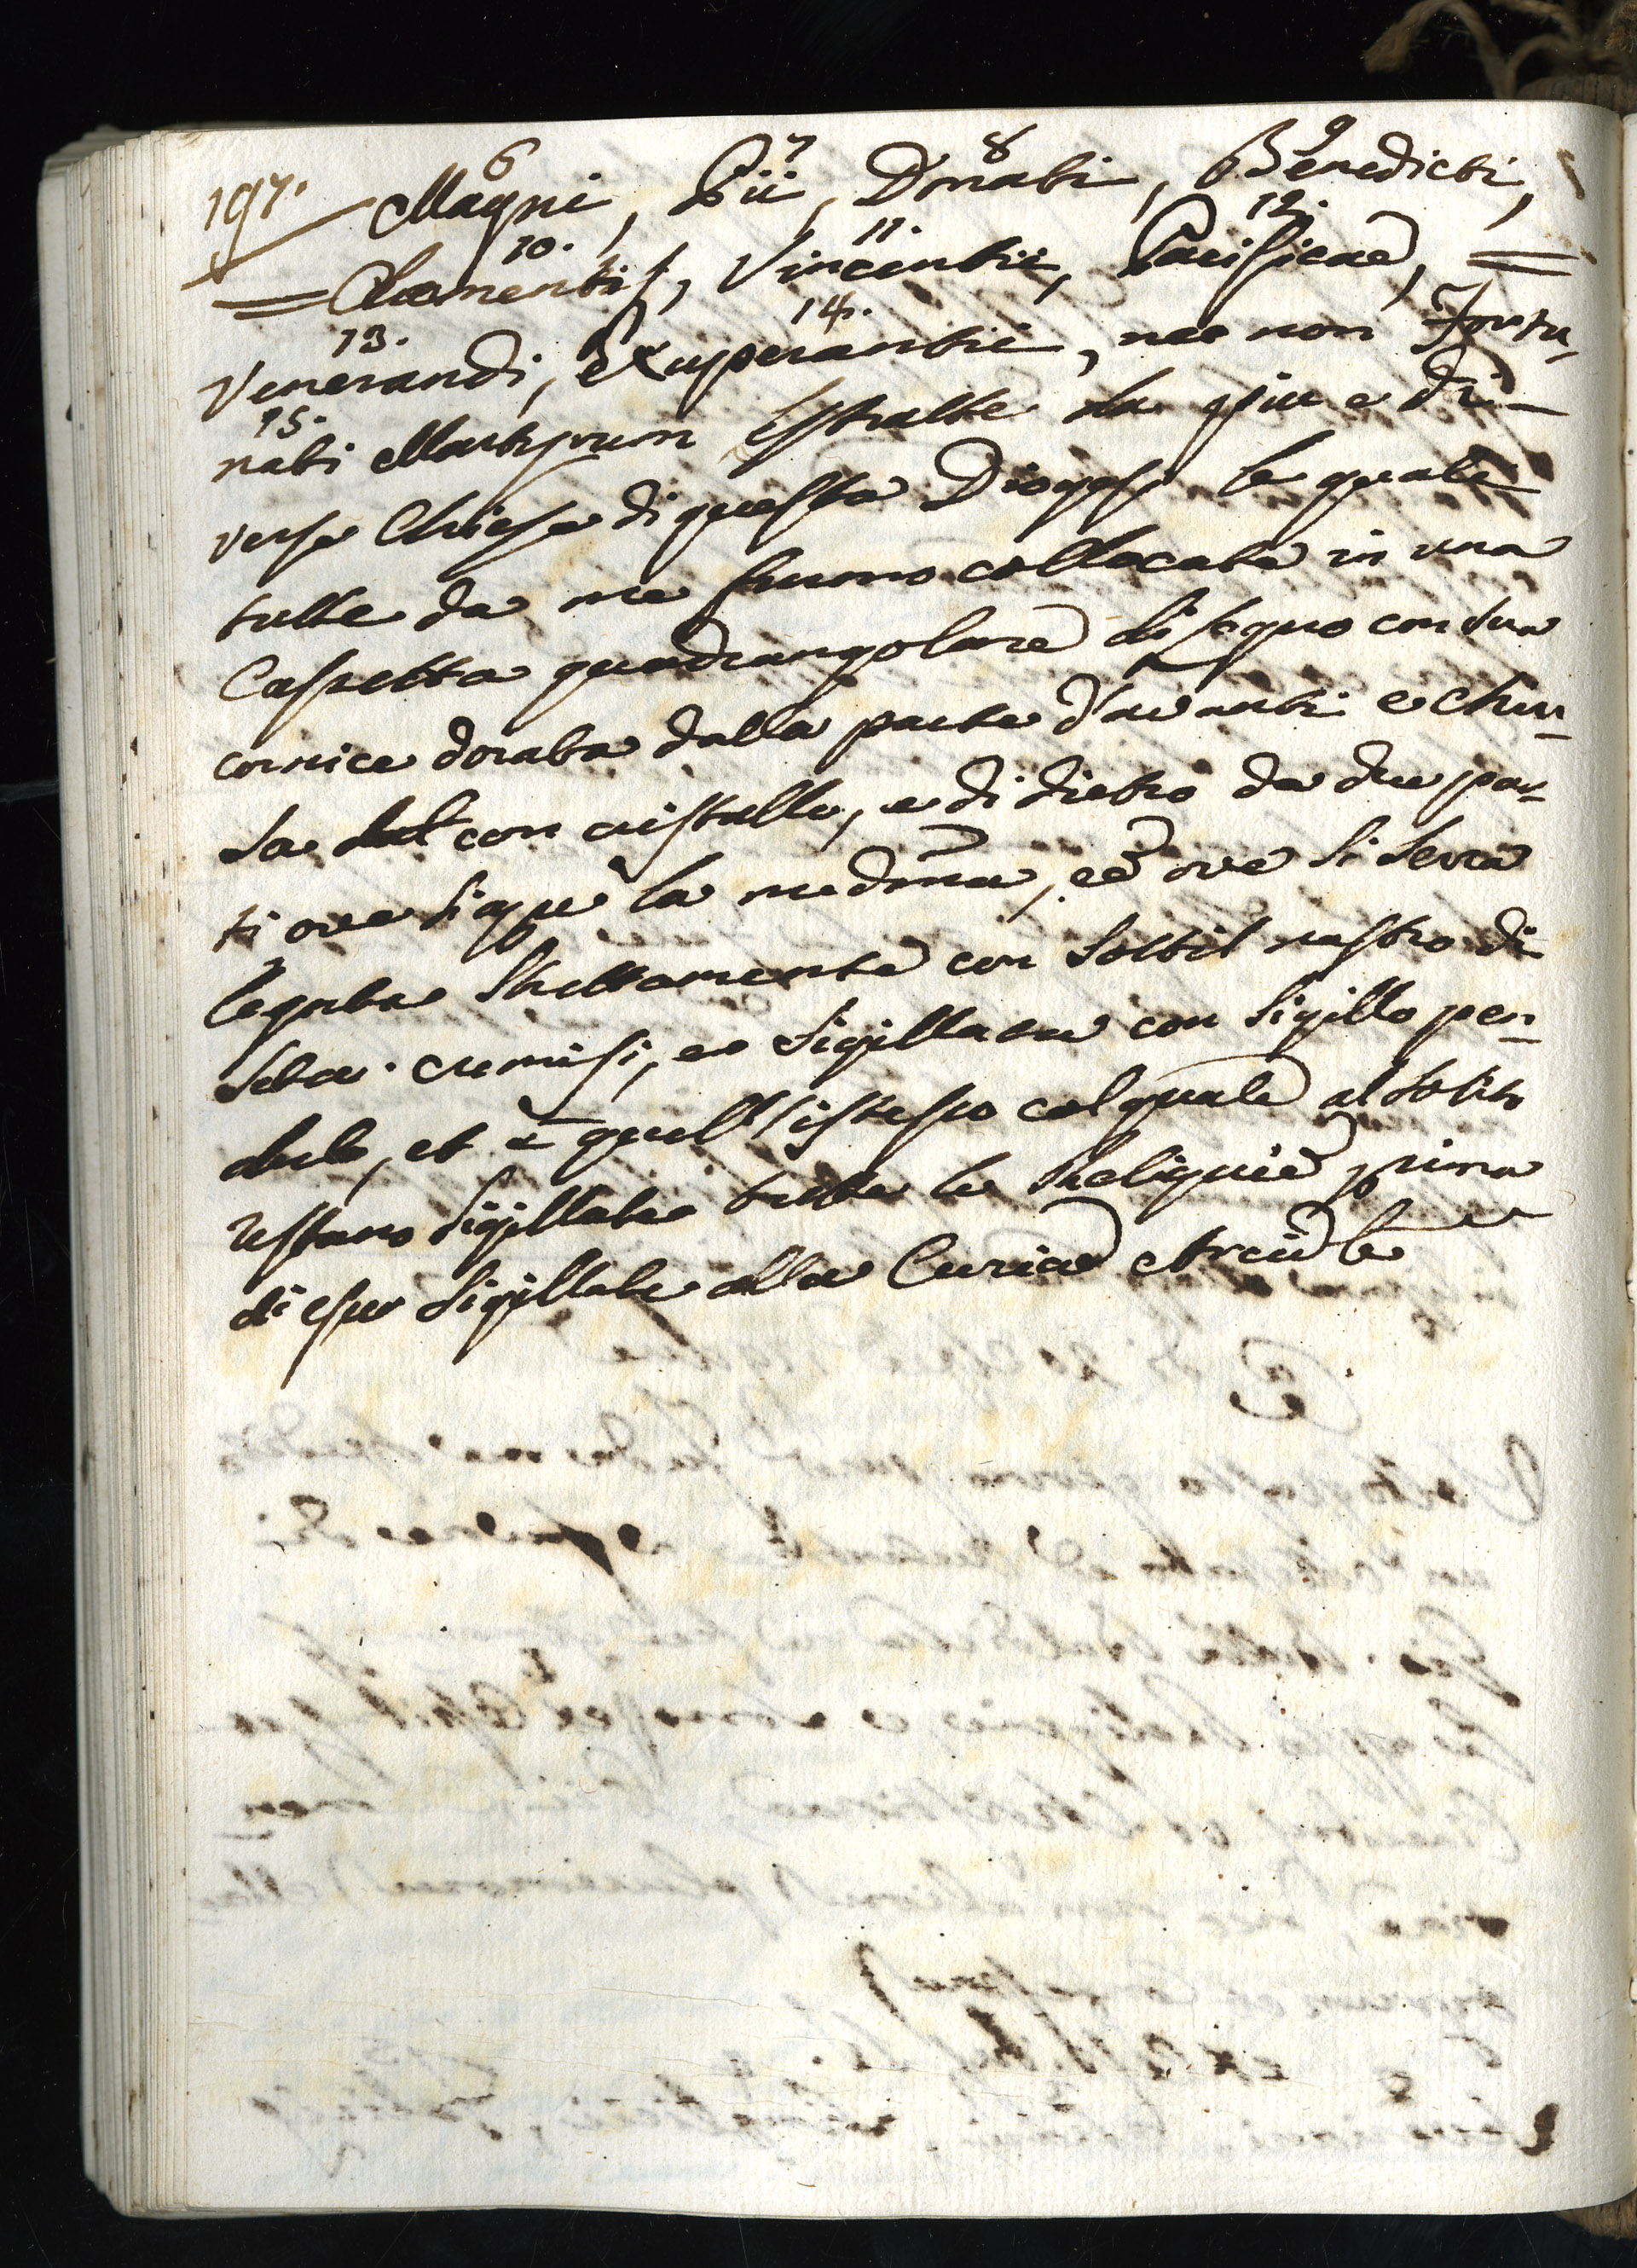 197.
6 7 8 9
Magni, Pii, Donati, Benedicti,
10. 11. 12.
= Clementis, Vincentii, Pacificae, =
13. 14.
Venerandi, Exuperantii, nec non Fortu-
15.
nati Martyrum Estratte da piu e di-
verse Chiese di questa Diogesi le quali
tutte da me furono collocate in una
Cassetta quadrangolare di legno con sua
cornice dorata dalla parte d'avanti e chiu-
sa con cristallo, e di dietro da due par-
ti ove si apre la medma, e ove si serra
legata strettamente con sottil nastro di
seta cremisi, e sigillata con sigillo pen-
dule, et è quell'istesso col quale al solito
restano sigillate tutte le Reliquie prima
di esser sigillate alla Curia